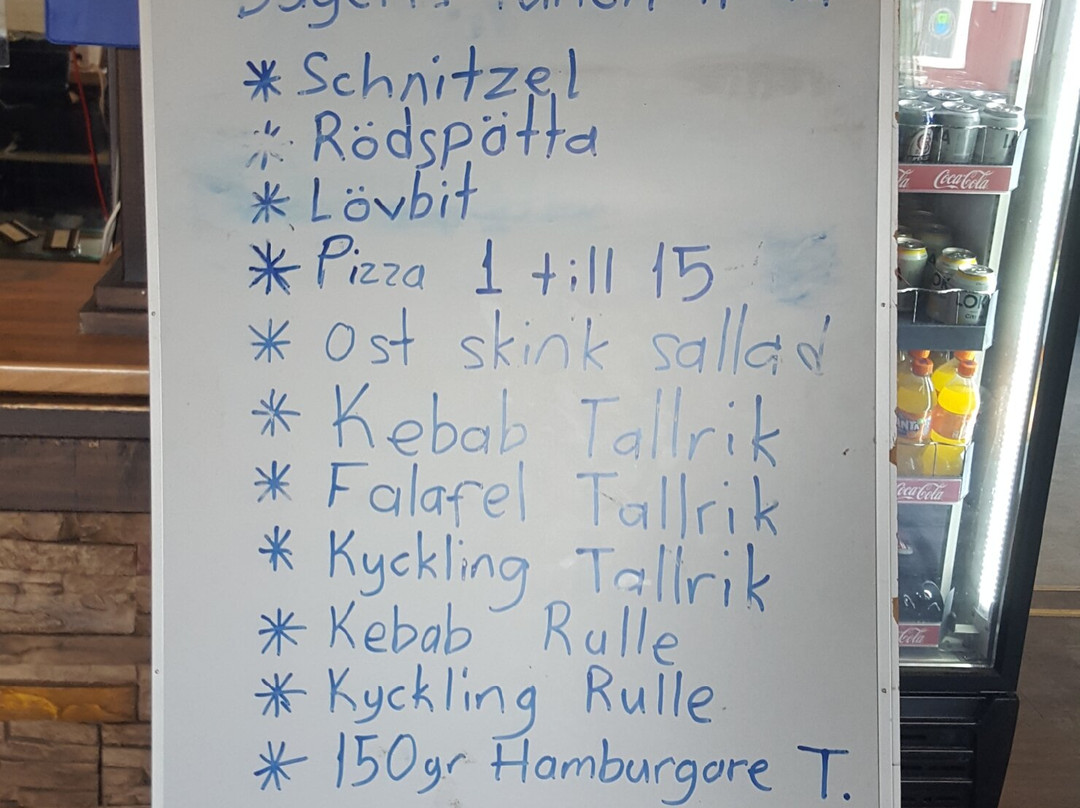 * Schnitzel
* Rödspötta
* Lövbit
* Pizza 1 till 15
* Ost skink sallad
* Kebab Tallrik
* Falafel Tallrik
* Kyckling Tallrik
* Kebab Rulle
* Kyckling Rulle
* 150gr Hamburgare T.
Coca-Cola
LOK
Coca-Cola
Cola